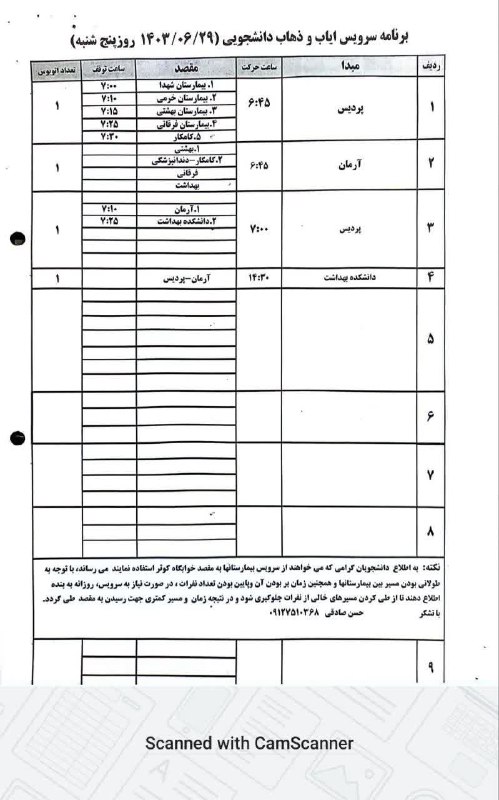 برنامه سرویس ایاب و ذهاب دانشجویی (۱۴۰۳/۰۶/۲۹ روزپنج شنبه)
ردیف مبدا ساعت حرکت مقصد ساعت توقف تعداد اتوبوس
۱ پردیس ۶:۴۵ ۱
۱. بیمارستان شهدا ۷:۰۰
۲. بیمارستان خرمی ۷:۱۰
۳. بیمارستان بهشتی ۷:۱۵
۴. بیمارستان فرقانی ۷:۲۵
۵. کامکار ۷:۳۰
۲ آرمان ۶:۴۵ ۱
۱. بهشتی
۲. کامکار-دندانپزشگی
فرقانی
بهداشت
۳ پردیس ۷:۰۰ ۱
۱. آرمان ۷:۱۰
۲. دانشکده بهداشت ۷:۲۵
۴ دانشکده بهداشت ۱۴:۳۰ آرمان-پردیس ۱
۵
۶
۷
۸
نکته: به اطلاع دانشجویان گرامی که می خواهند از سرویس بیمارستانها به مقصد خوابگاه کوثر استفاده نمایند می رساند، با توجه به
طولانی بودن مسیر بین بیمارستانها و همچنین زمان بر بودن آن وپایین بودن تعداد نفرات ، در صورت نیاز به سرویس، روزانه به بنده
اطلاع دهند تا از طی کردن مسیرهای خالی از نفرات جلوگیری شود و در نتیجه زمان و مسیر کمتری جهت رسیدن به مقصد طی گردد.
با تشکر حسن صادقی ۰۹۱۲۷۵۱۰۳۶۸
۹
Scanned with CamScanner